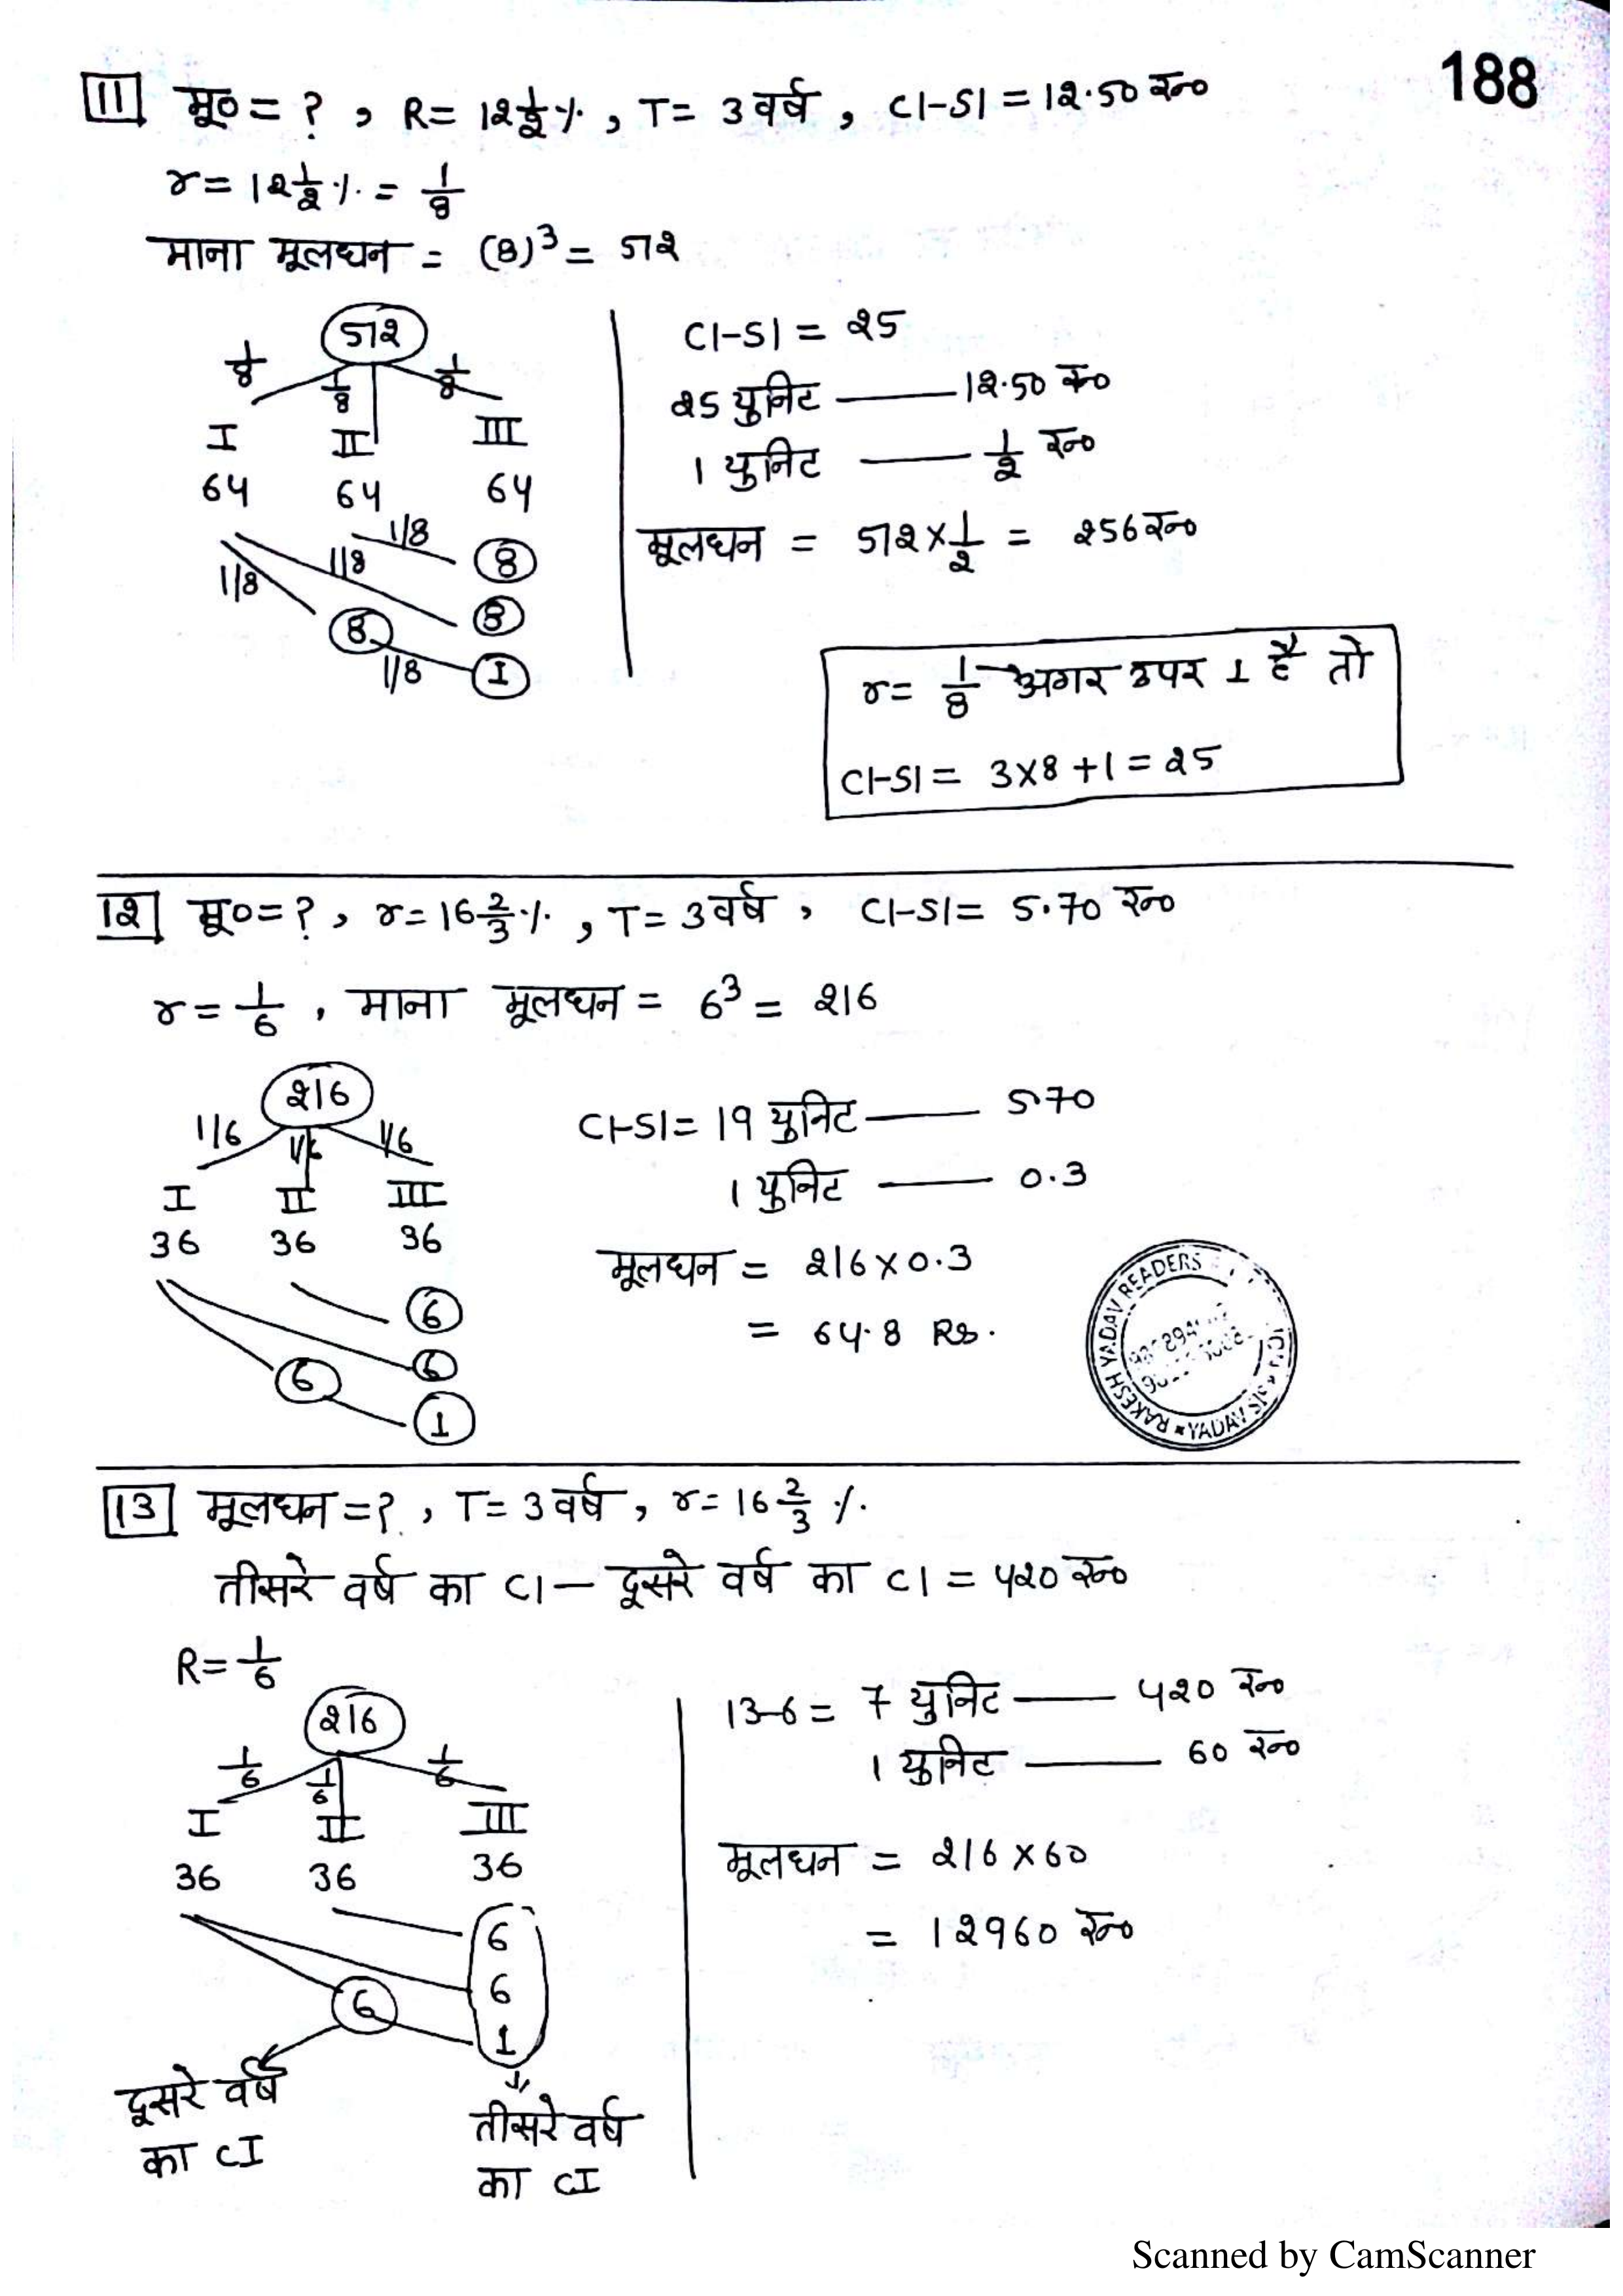 188
11 मू० = ? , R = 12 1/2 % , T = 3 वर्ष , CI-SI = 12.50 रु०
r = 12 1/2 % = 1/8
माना मूलधन = (8)³ = 512
512
1/8 1/8 1/8
I II III
64 64 64
1/8 8
1/8 8
1/8 8
1/8 I
CI-SI = 25
25 युनिट —— 12.50 रु०
1 युनिट —— 1/2 रु०
मूलधन = 512 × 1/2 = 256 रु०
r = 1/8 → अगर उपर 1 है तो
CI-SI = 3×8+1 = 25
12 मू० = ? , r = 16 2/3 % , T = 3 वर्ष , CI-SI = 5.70 रु०
r = 1/6 , माना मूलधन = 6³ = 216
216
1/6 1/6 1/6
I II III
36 36 36
6
6
6
1
CI-SI = 19 युनिट —— 5.70
1 युनिट —— 0.3
मूलधन = 216 × 0.3
= 64.8 Rs.
RAKESH YADAV READERS
YADAV
13 मूलधन = ? , T = 3 वर्ष , r = 16 2/3 %.
तीसरे वर्ष का CI — दूसरे वर्ष का CI = 420 रु०
R = 1/6
216
1/6 1/6 1/6
I II III
36 36 36
6
6
6
1
दूसरे वर्ष
का CI
तीसरे वर्ष
का CI
13-6 = 7 युनिट —— 420 रु०
1 युनिट —— 60 रु०
मूलधन = 216 × 60
= 12960 रु०
Scanned by CamScanner